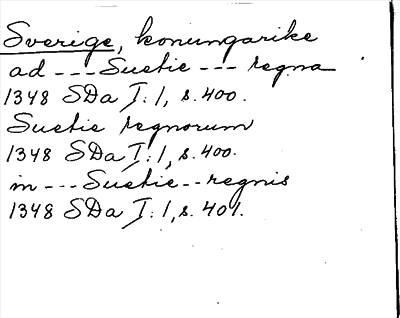 Sverige, konungarike
ad --- Suetie --- regna
1348 SDa I:1, s. 400.
Suetie regnorum
1348 SDa I:1, s. 400.
in --- Suetie -- regnis
1348 SDa I:1, s. 401.